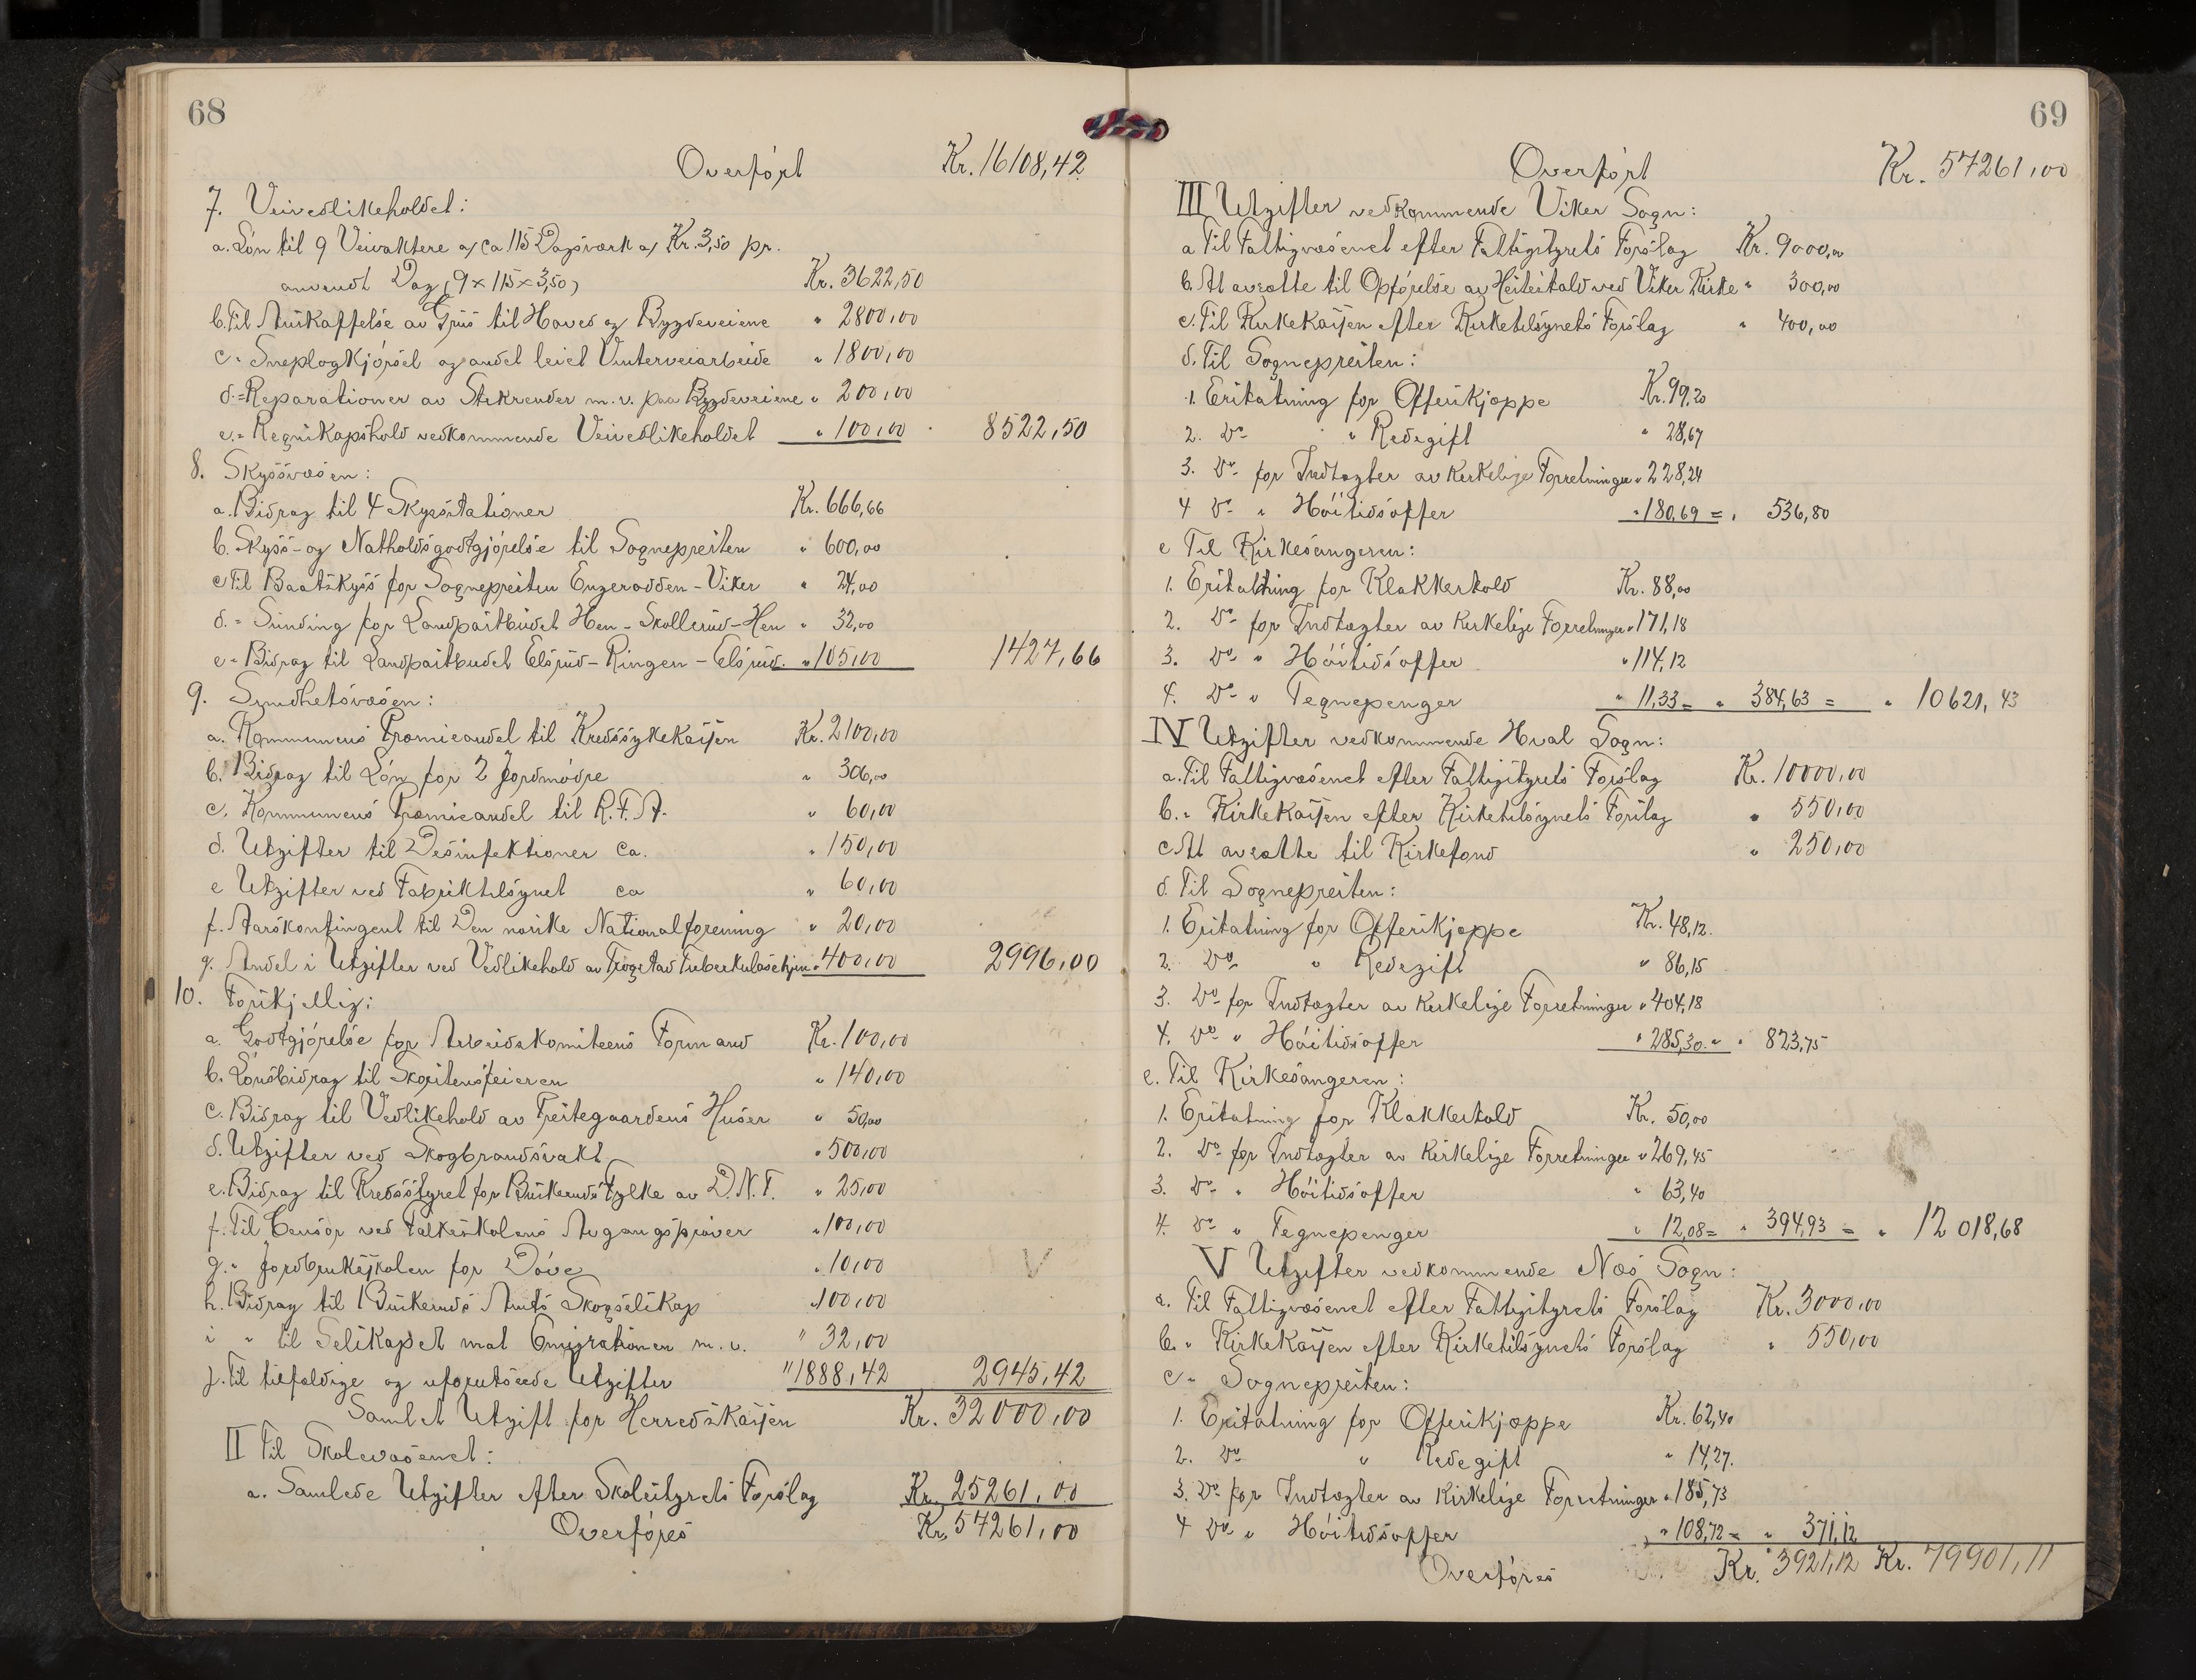 68
Overført Kr. 16108,42
7. Veivedlikeholdet:
a. Løn til 9 Veivaktere a/ ca 115 Dagsværk a/ Kr. 3,50 pr.
anvendt Dag (9 x 115 x 3,50) Kr. 3622,50
b. Til Anskaffelse av Grus til Hoved og Bygdeveiene " 2800,00
c. " Sneplogkjørsel og andet leiet Vinterveiarbeide " 1800,00
d. " Reparationer av Stikrender m.v. paa Bygdeveiene " 200,00
e. " Regnskapshold vedkommende Veivedlikeholdet " 100,00 8522,50
8. Skyssvæsen:
a. Bidrag til 4 Skysstationer Kr. 666,66
b. Skyss- og Natholdsgodtgjørelse til Sognepresten " 600,00
c Til Baatskyss for Sognepresten Engerodden - Viker " 24,00
d. " Sunding for Landpostbudet Hen - Skollerud - Hen " 32,00
e " Bidrag til Landpostbudet Elsrud - Ringen - Elsrud. " 105,00 1427,66
9. Sundhetsvæsen:
a. Kommunens Præmieandel til Kredssykekassen Kr. 2100,00
b. Bidrag til Løn for 2 Jordmødre " 306,00
c. Kommunens Præmieandel til R.F.A. " 60,00
d. Utgifter til Desinfektioner ca. " 150,00
e Utgifter ved Fabriktilsynet ca " 60,00
f. Aarskontingent til Den norske Nationalforening " 20,00
g. Andel i Utgifter ved Vedlikehold av Frogstad Tuberkulosehjem " 400,00 2996,00
10. Forskjellig:
a. Godtgjørelse for Arbeidskomiteens Formand Kr. 100,00
b. Lønsbidrag til Skorstensfeieren " 140,00
c. Bidrag til Vedlikehold av Treitegaardens Huser " 50,00
d. Utgifter ved Skogbrandsvakt " 500,00
e. Bidrag til Kredsstyret for Buskeruds Fylke av D.N.T. " 25,00
f. Til Censor ved Folkeskolens Avgangsprøver " 100,00
g. " Jordbruksskolen for Døve " 10,00 V
h. Bidrag til Buskeruds Amts Skogselskap " 100,00
i " til Selskapet mot Emigrationen m.v. " 32,00
j. Til tilfældige og uforutseede Utgifter " 1888,42 2945,42
Samlet Utgift for Herredskassen Kr. 32000,00
II Til Skolevæsenet:
a. Samlede Utgifter efter Skolestyrets Forslag Kr. 25261,00
Overføres Kr. 57261,00
69
Overført Kr. 57261,00
III Utgifter vedkommende Viker Sogn:
a Til Fattigvæsenet efter Fattigstyrets Forslag Kr. 9000,00
b. At avsætte til Opførelse av Hestestald ved Viker Kirke " 300,00
c. Til Kirkekassen efter Kirketilsynets Forslag " 400,00
d. Til Sognepresten:
1. Erstatning for Offerskjæppe Kr. 99,20
2. Do " Redegift " 28,67
3. Do for Indtægter av kirkelige Forretninger " 228,24
4 Do " Høitidsoffer " 180,69 = " 536,80
e Til Kirkesangeren:
1. Erstatning for Klokkertold Kr. 88,00
2. Do for Indtægter av kirkelige Forretninger " 171,18
3. Do " Høitidsoffer " 114,12
4. Do " Tegnepenger " 11,33 = " 384,63 = " 10621,43
IV Utgifter vedkommende Hval Sogn:
a. Til Fattigvæsenet efter Fattigstyrets Forslag Kr. 10000,00
b. " Kirkekassen efter Kirketilsynets Forslag " 550,00
c. At avsætte til Kirkefond " 250,00
d. Til Sognepresten:
1. Erstatning for Offerskjæppe Kr. 48,12.
2. Do " Redegift " 86,15
3. Do for Indtægter av kirkelige Forretninger " 404,18
4. Do " Høitidsoffer " 285,30 = " 823,75
e. Til Kirkesangeren:
1. Erstatning for Klokkertold Kr. 50,00
2. Do for Indtægter av kirkelige Forretninger " 269,45
3. Do " Høitidsoffer " 63,40
4. Do " Tegnepenger " 12,08 = " 394,93 = " 12018,68
V Utgifter vedkommende Næs Sogn:
a. Til Fattigvæsenet efter Fattigstyrets Forslag Kr. 3000,00
b. " Kirkekassen efter Kirketilsynets Forslag " 550,00
c " Sognepresten:
1. Erstatning for Offerskjæppe Kr. 62,40
2. Do " Redegift " 14,27.
3. Do for Indtægter av kirkelige Forretninger " 185,73
4 Do " Høitidsoffer " 108,72 = " 371,12
Overføres Kr. 3921,12 Kr. 79901,11